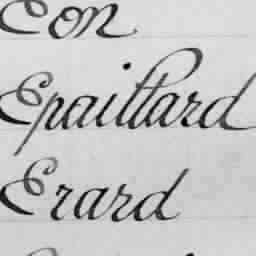 Eon
Epaillard
Erard